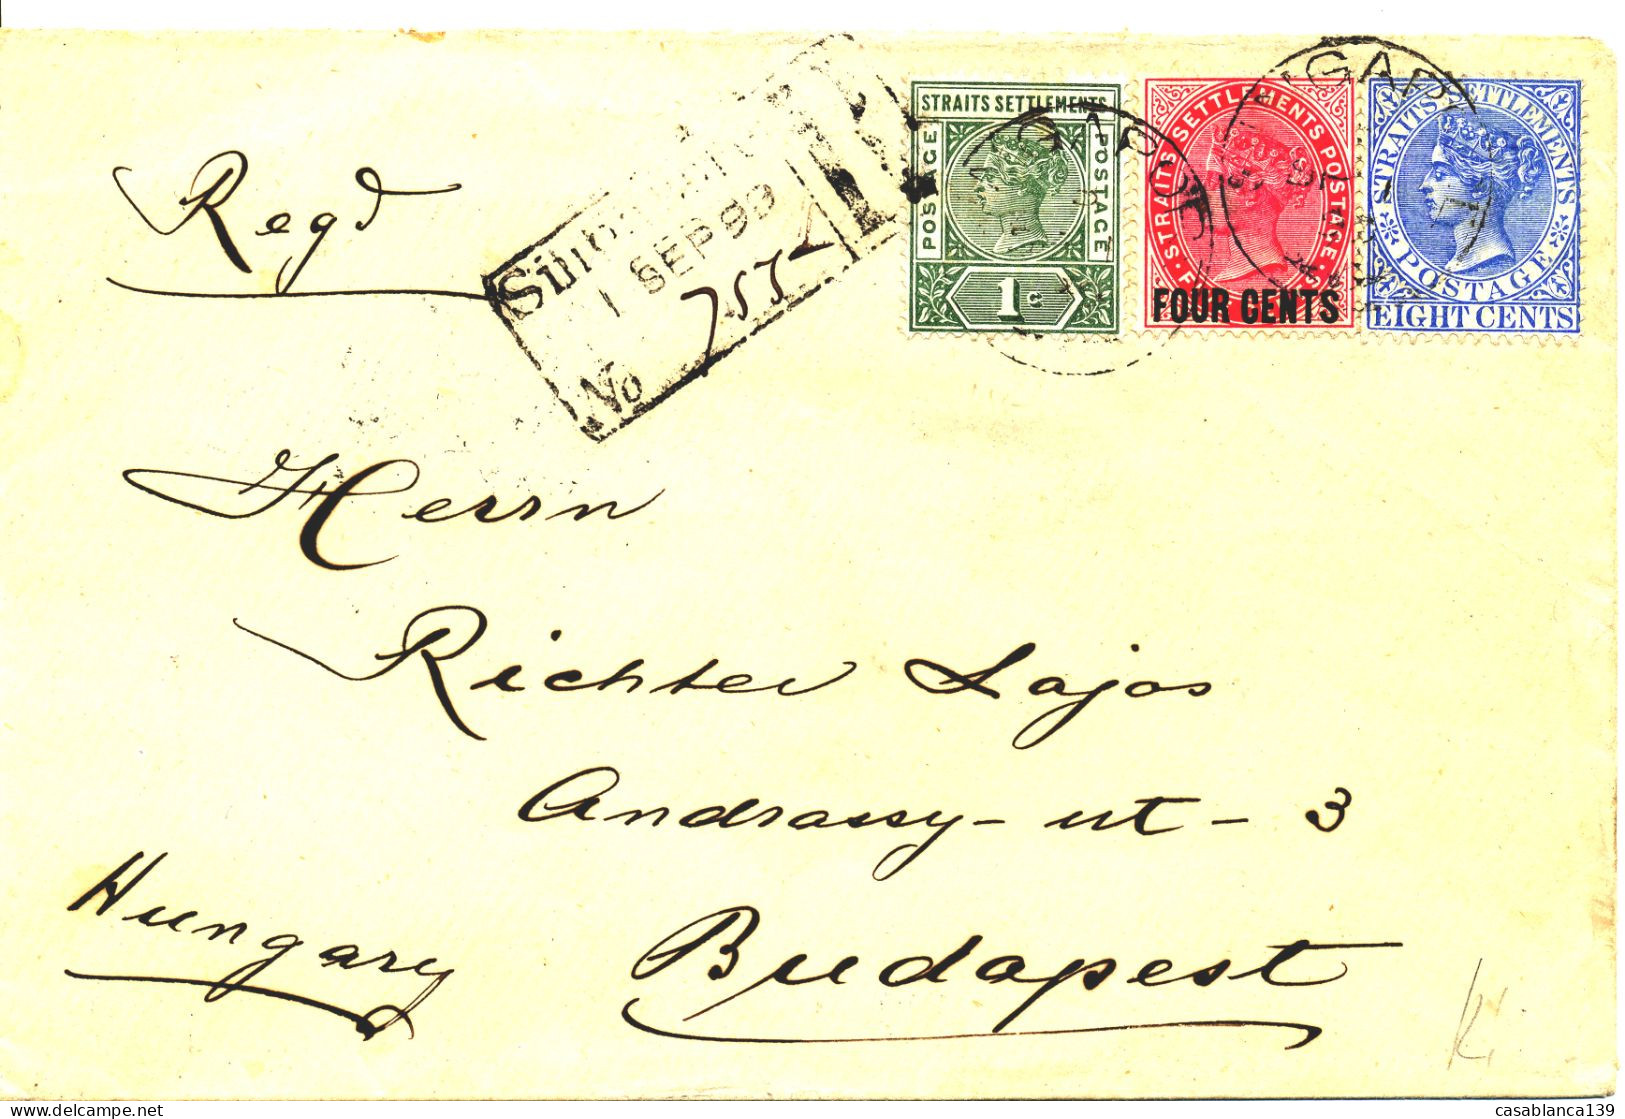 Regd
Singapore
1 SEP 99
No
STRAITS SETTLEMENTS
POSTAGE
POSTAGE
1c
STRAITS SETTLEMENTS POSTAGE
FOUR CENTS
STRAITS SETTLEMENTS
POSTAGE
EIGHT CENTS
Herrn
Richter Lajos
Andrassy-ut-3
Hungary
Budapest
www.delcampe.net
casablanca139